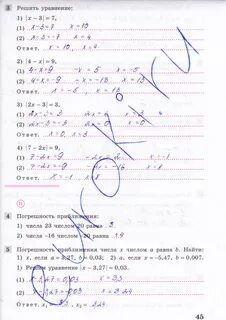 3 Решить уравнение:
1) |x − 3| = 7,
(1) x-3=7 x=10
(2) x-3=-7
Ответ. x=10,
2) |4 − x| = 9,
(1) 4-x=9 -x=5 x=-5
(2) 4-x=-9 -x=-13 x=13
Ответ. x=-5, x=13
3) |2x − 3| = 3,
(1) 2x-3=3 x=3
(2) 2x-3=-3 x=0
Ответ. x=0, x=3
4) |7 − 2x| = 9,
(1) 7-2x=9 x=-1
(2) 7-2x=-9 x=8
Ответ. x=-1 x=8
4 Погрешность приближения:
1) числа 23 числом 20 равна 3.
2) числа −16 числом −20 равна
5 Погрешность приближения числа x числом a равна b. Найти:
1) x, если a = 3,27, b = 0,03; 2) a, если x = −5,47, b = 0,007.
1) Решим уравнение |x − 3,27| = 0,03.
(1) x-3,27=0,03
(2) x-3,27=-0,03 x=3,24
Ответ. 3,24
45
gurokiru